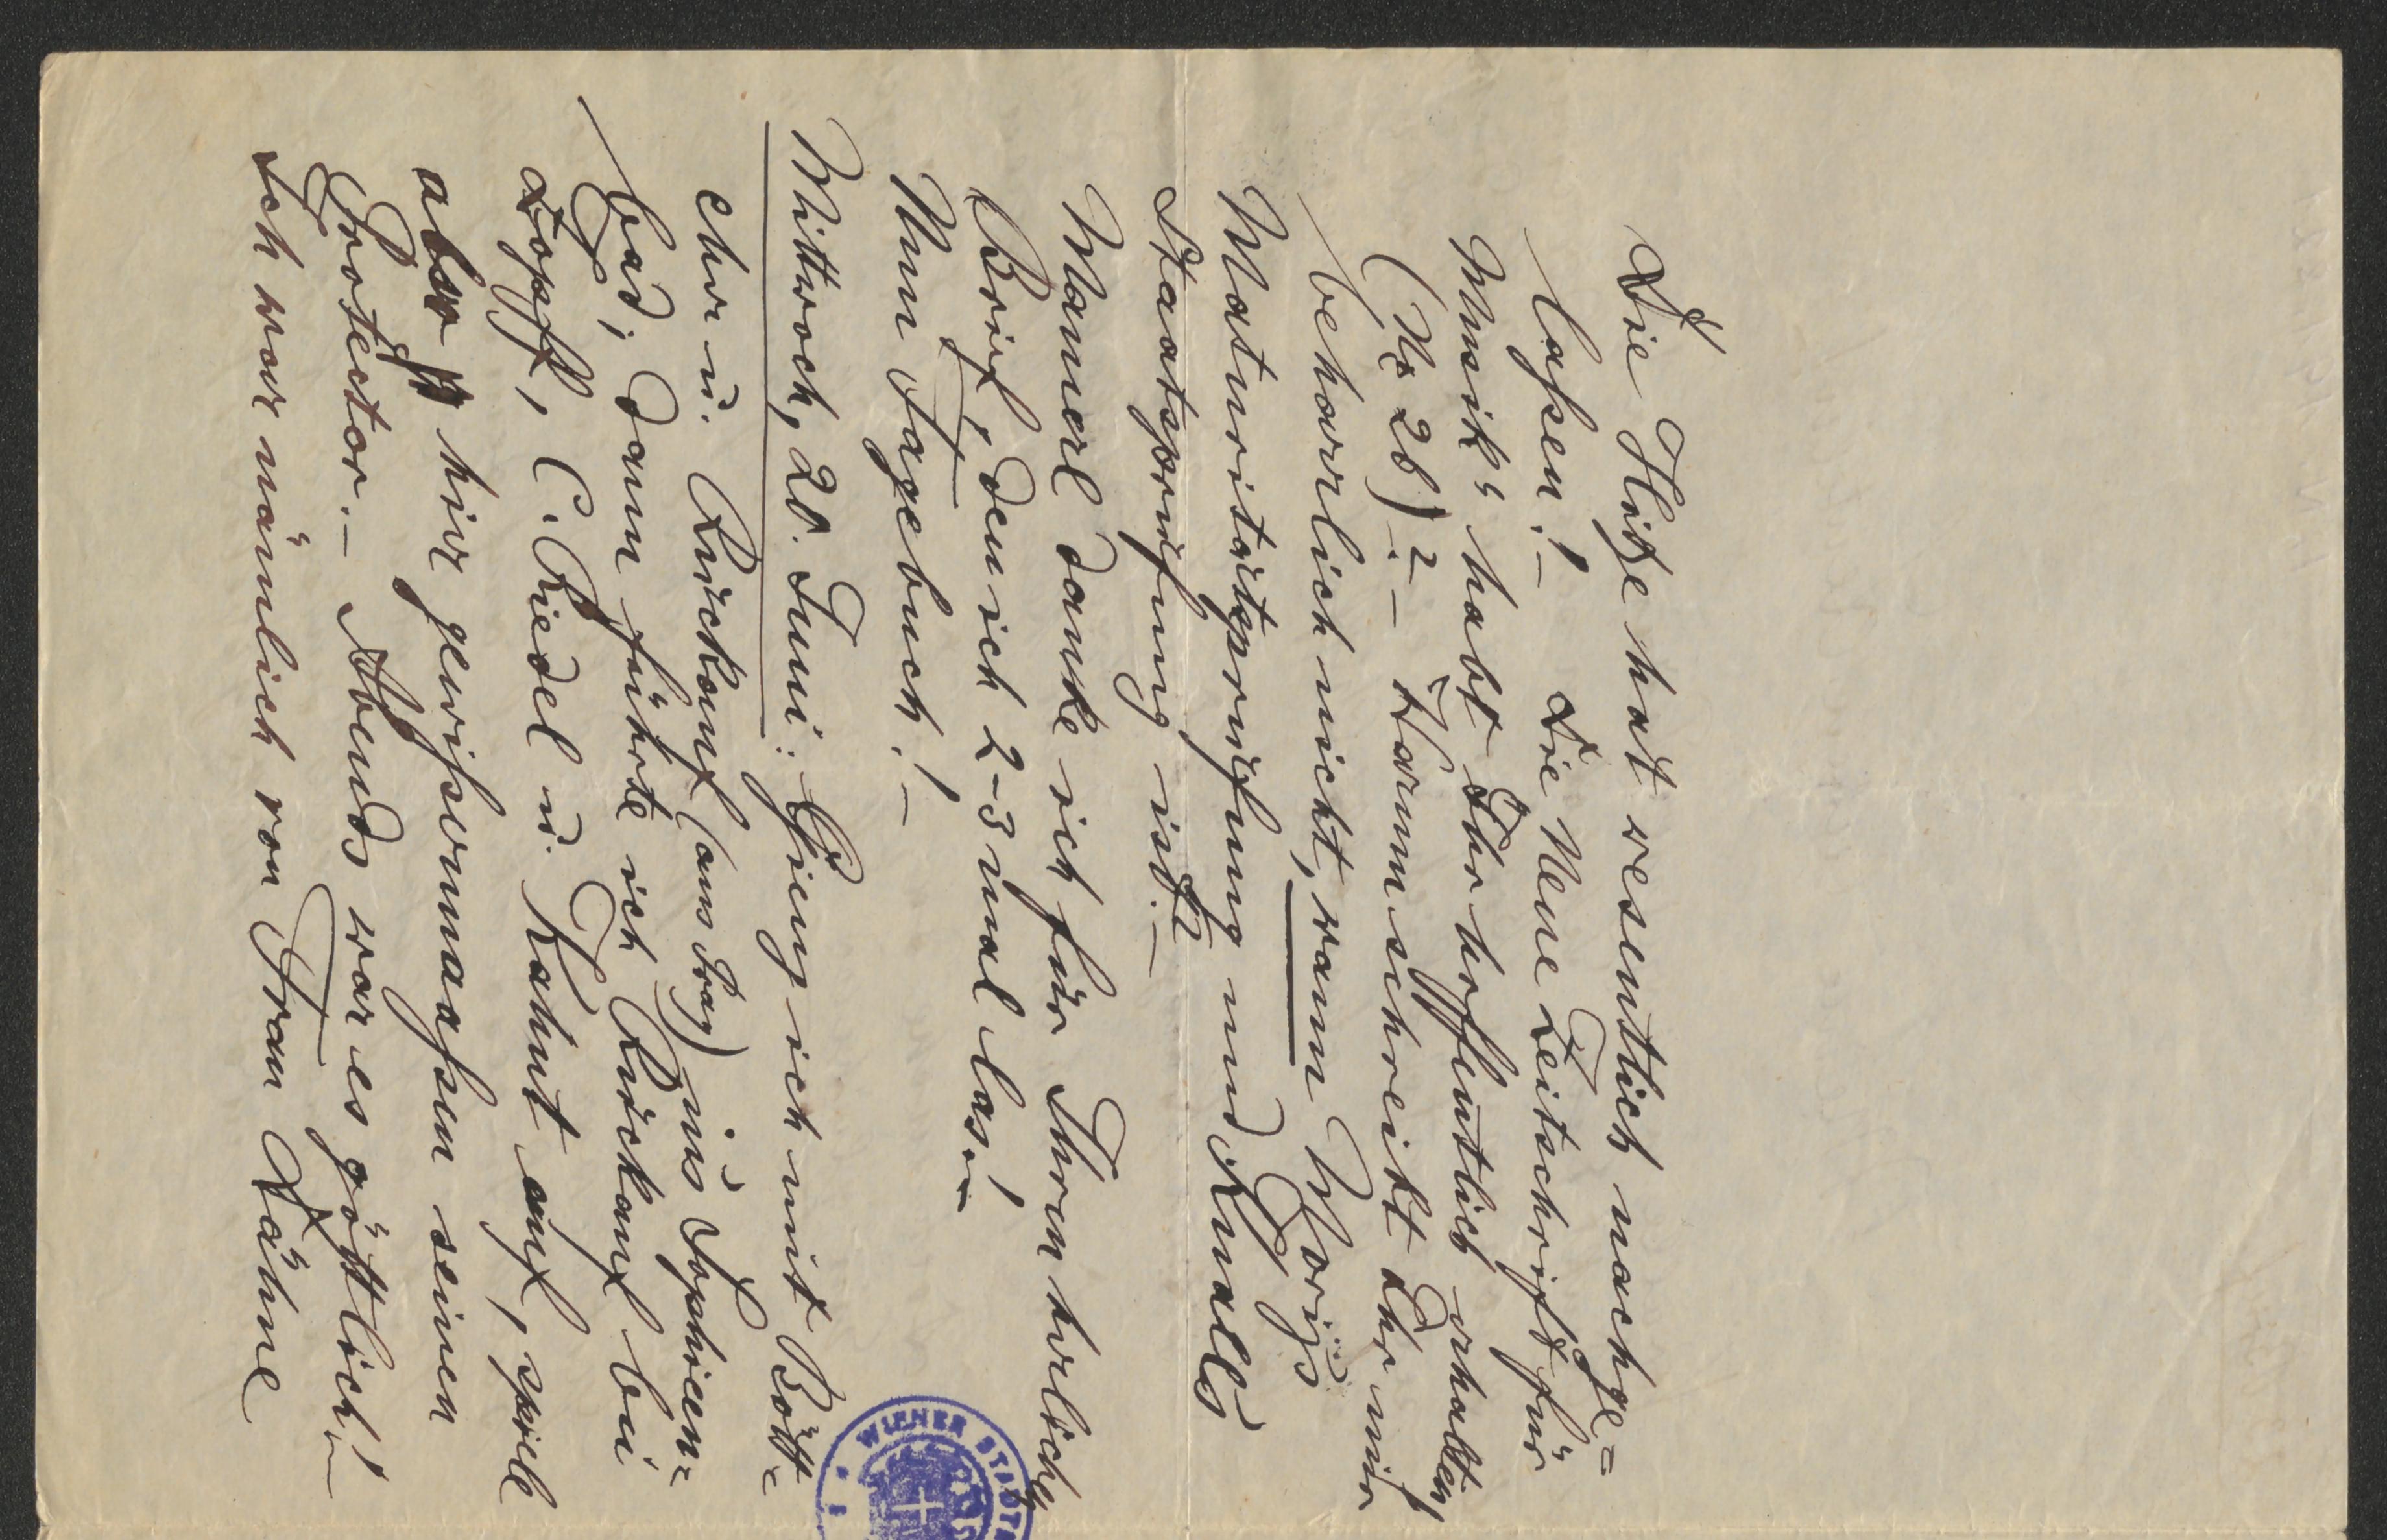 Die Hitze hat wesentlich nachge=
laßen!— Die Neue Zeitschrift für
Musik" habt Ihr hoffentlich erhalten
(No 26)?— Warum schreibt Ihr mir
beharrlich nicht, wann Moriz's
Maturitätsprüfung und Rudls
Staatsprüfung ist?—
Mamerl danke ich für Ihren herlichen
Brief, den ich 2-3 mal las!—
Nun Tagebuch!—
Mittwoch, 20. Juni: Gieng ich mit Bött=
cher u. Rückauf (aus Prag) in's Sophien=
bad; dann führte ich Rückauf bei
Zopff, C. Riedel u. Kahnt auf, spiele
also hier gewißermaaßen seinen
Protector.— Abends war es göttlich!—
Ich war nämlich von Frau Dähne
WIENER STADT